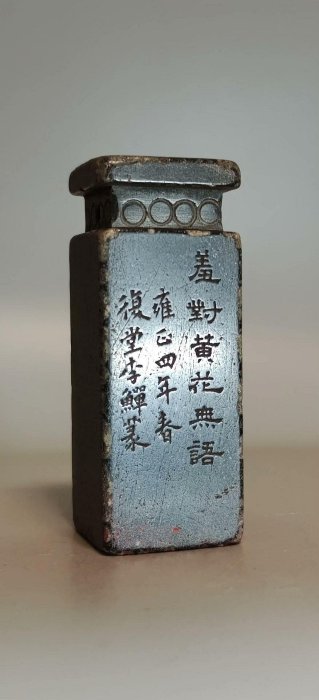 羞對黄花無語
雍正四年春
復堂李鱓篆